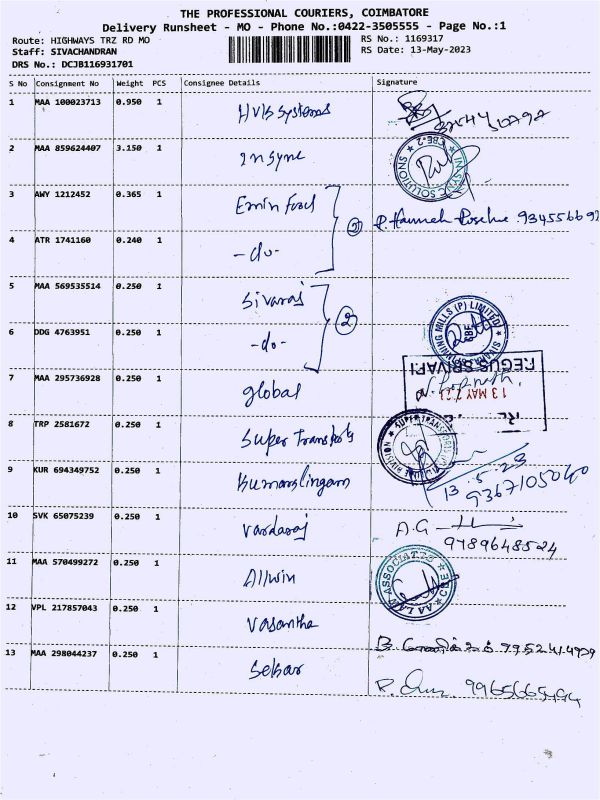 THE PROFESSIONAL COURIERS, COIMBATORE
Delivery Runsheet - MO - Phone No.:0422-3505555 - Page No.:1
Route: HIGHWAYS TRZ RD MO RS No.: 1169317
Staff: SIVACHANDRAN RS Date: 13-May-2023
DRS No.: DCJB116931701
S No Consignment No Weight PCS Consignee Details Signature
1 MAA 100023713 0.950 1 HVB Systems
2 MAA 859624407 3.150 1 Insync
IN SYNC SOLUTIONS CBE-2
3 AWY 1212452 0.365 1 Emin Food
②
4 ATR 1741160 0.240 1 -do-
5 MAA 569535514 0.250 1 Sivaraj
②
6 DDG 4763951 0.250 1 -do-
MILLS (P) LIMITED
REGUS SRIVARI
7 MAA 295736928 0.250 1 global
13 MAY
8 TRP 2581672 0.250 1 Super Transports
SUPER TRANSPORTS
DIVISION
9 KUR 694349752 0.250 1 Kumaralingam
13.5.23
9367105040
10 SVK 65075239 0.250 1 Vardaraj A.G
9789648524
11 MAA 570499272 0.250 1 Allwin
LAW ASSOCIATES CBE
12 VPL 217857043 0.250 1 Vasantha
13 MAA 298044237 0.250 1 Sekar